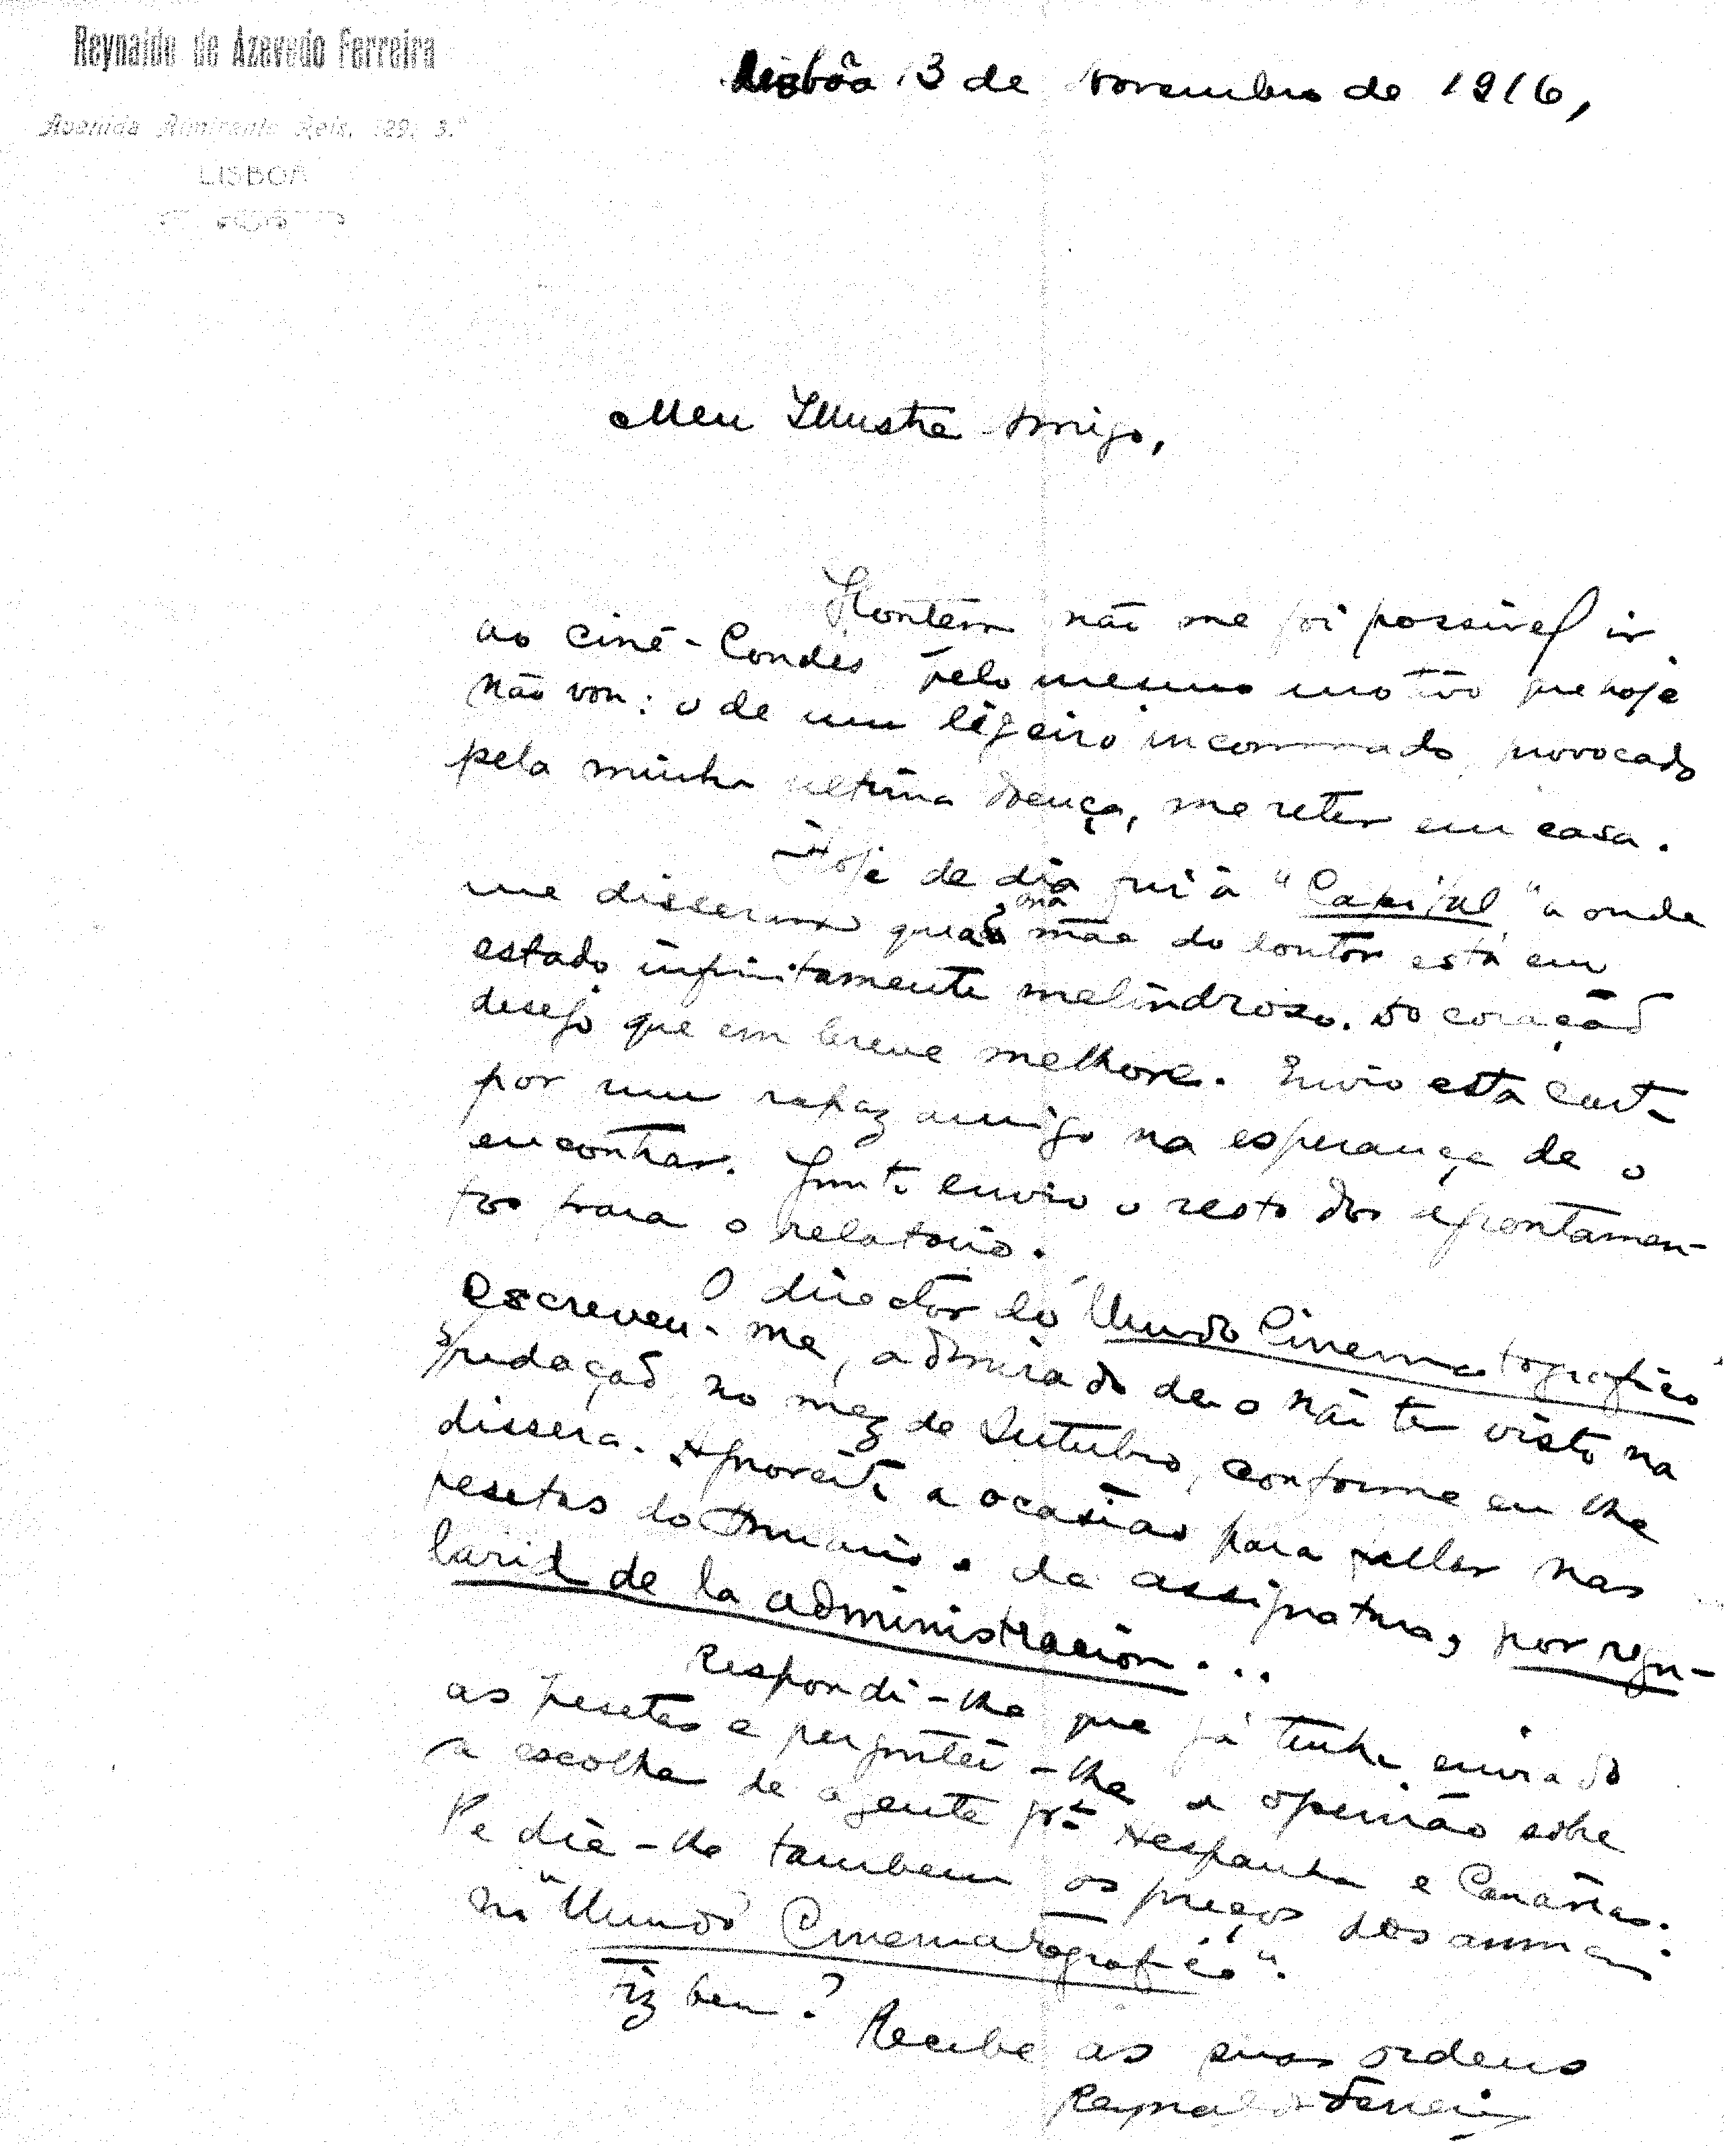 Reynaldo de Azevedo Ferreira
Avenida Almirante Reis, 129, 3.º
LISBOA
Lisbôa 13 de Novembro de 1916,
Meu Illustre Amigo,
Hontem não me foi possivel ir
ao ciné-Condes pelo mesmo motivo que hoje
não vou: o de um ligeiro incommodo, provocado
pela minha ultima doença, me reter em casa.
Hoje de dia fui à "Capital" a onde
me disseram que a mãe do doutor está em
estado infinitamente melindroso. Do coração
desejo que em breve melhore. Envio esta carta
por um rapaz amigo na esperança de o
encontrar. Junto envio o resto dos apontamen-
tos para o relatorio.
O director do "Mundo Cinematografico"
escreveu-me, admirado de o não ter visto na
redação no mez de Outubro, conforme eu lhe
dissera. Aproveita a ocasião para fallar nas
pesetas do Anuario e da assignatura, por regu-
larid de la administracion...
Respondi-lhe que já tinha enviado
as pesetas e perguntei-lhe a opinião sôbre
a escolha de agente prª Hespanha e Canarias.
Pedi-lhe tambem os preços dos annuncios
no "Mundo Cinematografico".
Fiz bem?
Recebe as suas ordens
Reynaldo Ferreira